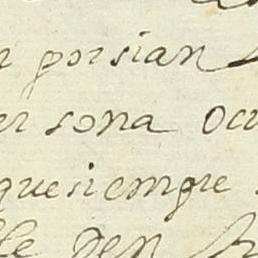 porsian
er sona ocu
quesiempre
lle Den